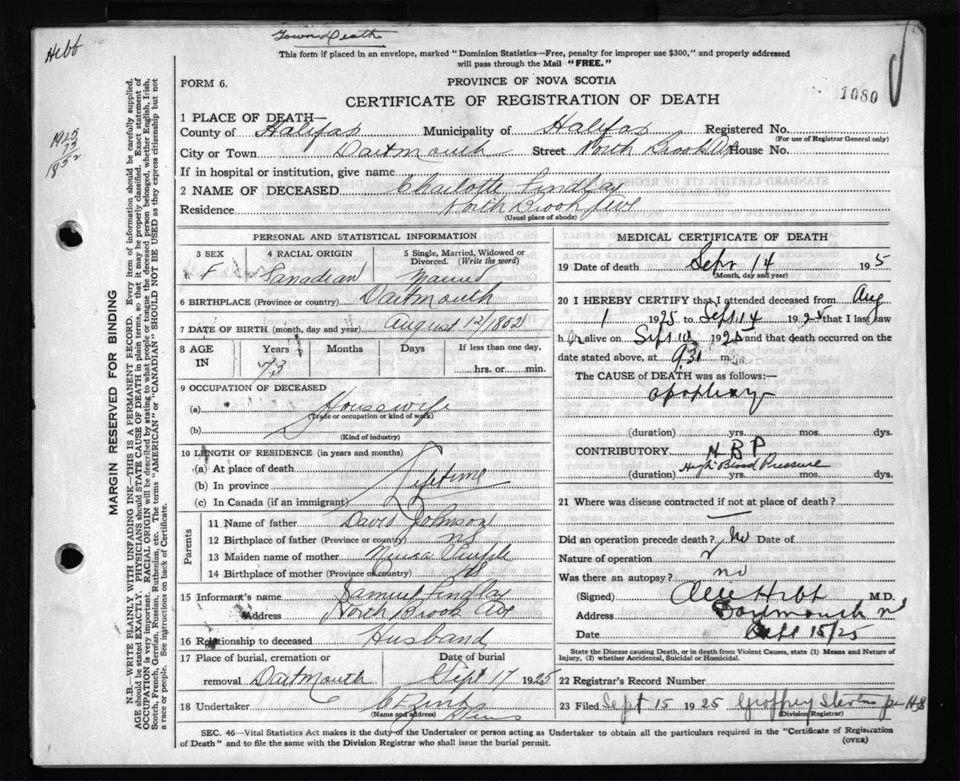 Town Death
Hebb
This form if placed in an envelope, marked "Dominion Statistics—Free, penalty for improper use $300," and properly addressed
will pass through the Mail "FREE."
FORM 6.
PROVINCE OF NOVA SCOTIA
1080
CERTIFICATE OF REGISTRATION OF DEATH
1925
73
1852
1 PLACE OF DEATH—
County of Halifax Municipality of Halifax Registered No.
(For use of Registrar General only)
City or Town Dartmouth Street North Brook Ave House No.
If in hospital or institution, give name
2 NAME OF DECEASED Charlotte Findlay
Residence North Brook Ave
(Usual place of abode)
PERSONAL AND STATISTICAL INFORMATION
3 SEX F
4 RACIAL ORIGIN Canadian
5 Single, Married, Widowed or Divorced. (Write the word) Married
6 BIRTHPLACE (Province or country) Dartmouth
7 DATE OF BIRTH (month, day and year) August 12/1852
8 AGE IN Years Months Days If less than one day,
73 hrs. or min.
9 OCCUPATION OF DECEASED
(a) Housewife
(Trade or occupation or kind of work)
(b)
(Kind of industry)
10 LENGTH OF RESIDENCE (in years and months)
(a) At place of death
(b) In province Lifetime
(c) In Canada (if an immigrant)
Parents
11 Name of father David Johnson
12 Birthplace of father (Province or country) NS
13 Maiden name of mother
14 Birthplace of mother (Province or country)
15 Informant's name Samuel Findlay
Address North Brook Ave
16 Relationship to deceased Husband
17 Place of burial, cremation or removal Dartmouth
Date of burial Sept 17 1925
18 Undertaker
(Name and address)
MEDICAL CERTIFICATE OF DEATH
19 Date of death Sept 14 195
(Month, day and year)
20 I HEREBY CERTIFY that I attended deceased from Aug
1 1925 to Sept 14 192 that I last saw
her alive on Sept 1925 and that death occurred on the
date stated above, at 9.30 m.
The CAUSE of DEATH was as follows:—
apoplexy
(duration) yrs. mos. dys.
CONTRIBUTORY H B P
High Blood Pressure
(duration) yrs. mos. dys.
21 Where was disease contracted if not at place of death?
Did an operation precede death? No Date of
Nature of operation
Was there an autopsy? no
(Signed) Hebb M.D.
Address Dartmouth NS
Date Sept 15/25
State the Disease causing Death, or in death from Violent Causes, state (1) Means and Nature of
Injury, (2) whether Accidental, Suicidal or Homicidal.
22 Registrar's Record Number
23 Filed Sept 15 1925 Geoffrey Stevens per HS
(Division Registrar)
SEC. 46—Vital Statistics Act makes it the duty of the Undertaker or person acting as Undertaker to obtain all the particulars required in the "Certificate of Registration
of Death" and to file the same with the Division Registrar who shall issue the burial permit.
(OVER)
MARGIN RESERVED FOR BINDING
N.B.—WRITE PLAINLY WITH UNFADING INK—THIS IS A PERMANENT RECORD. Every item of information should be carefully supplied.
AGE should be stated EXACTLY. PHYSICIANS should STATE CAUSE OF DEATH in plain terms, so that it may be properly classified. Exact statement of
OCCUPATION is very important. RACIAL ORIGIN will be described by stating to what people or tongue the deceased person belonged, whether English, Irish,
Scotch, French, German, Russian, Ruthenian, etc. The terms "AMERICAN" or "CANADIAN" SHOULD NOT BE USED as they express citizenship but not
a race or people. See instructions on back of Certificate.